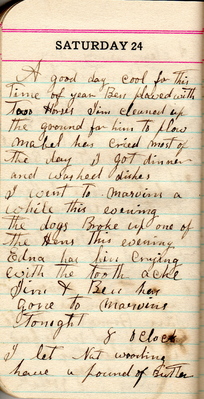 SATURDAY 24
A good day cool for this
time of year Ben plowed with
Two Horses Jim cleaned up
the ground for him to plow
mabel has cried most of
the day I got dinner
and washed dishes
I went to Marvins a
while this evening
the dogs Broke up one of
the Hens This evening
Edna has bin Crying
with the tooth Acke
Jim & Ben has
gone to Marvins
Tonight
O Clock
I let Nat
have a pound of Butter